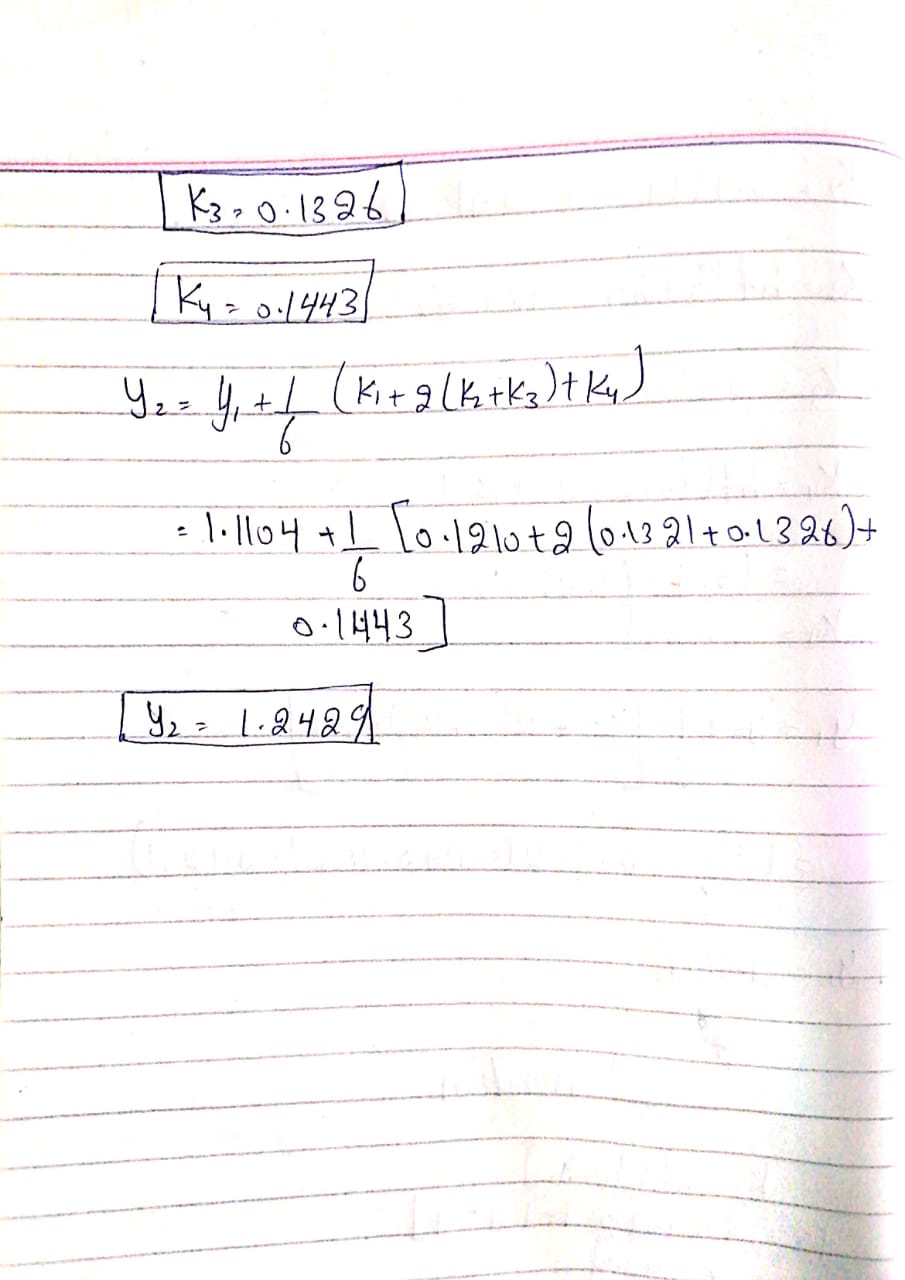 K₃ = 0.1326
K₄ = 0.1443
y₂ = y₁ + 1/6 (K₁ + 2(K₂ + K₃) + K₄)
= 1.1104 + 1/6 [0.1210 + 2(0.1321 + 0.1326) +
0.1443]
y₂ = 1.2429